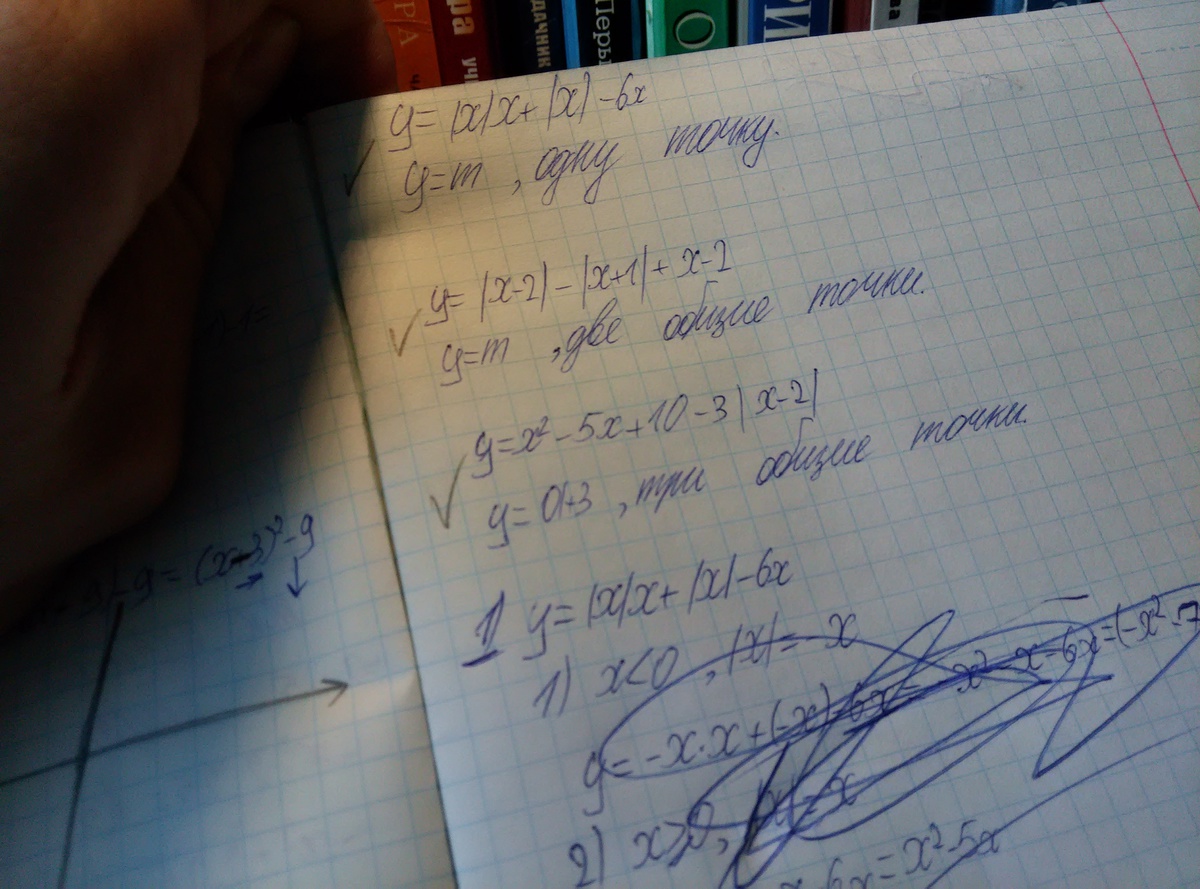 РА
ра
уч
дачник
Перы
О
РИ
ва
y= |x|x+ |x| -6x
y=m , одну точку.
y= |x-2| - |x+1| + x-2
y=m , две общие точки.
y=x² -5x+10-3|x-2|
y= 0+3 , три общие точки.
y= (x-3)²-9
1) y= |x|x+ |x| -6x
1) x<0 , |x|= -x
y= -x·x+(-x)-6x= -x²-x-6x=(-x²-7
2) x≥0, |x|=x
x-6x= x²-5x